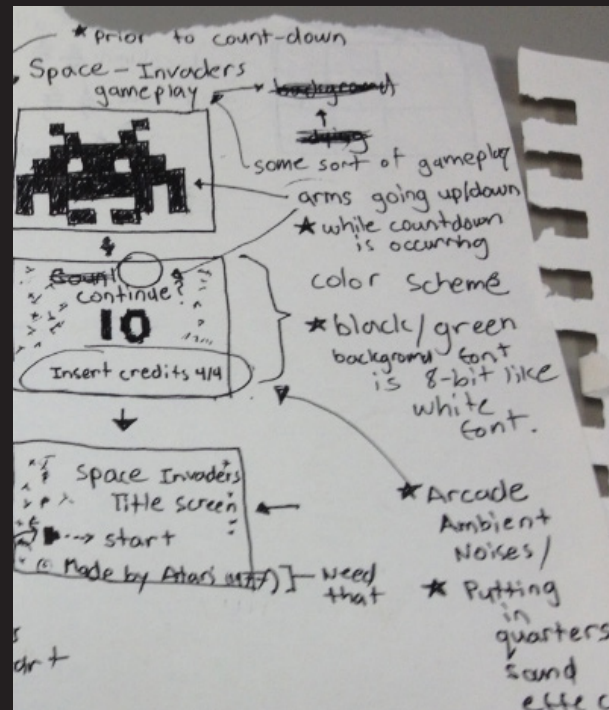 ★ Prior to count-down
Space-Invaders
gameplay
some sort of gameplay
arms going up/down
★ while countdown
is occurring
continue?
10
Insert credits 4/4
color scheme
★ black/green
background font
is 8-bit like
white
font.
Space Invaders
Title screen
start
Made by Atari
Need
that
★ Arcade
Ambient
Noises/
★ Putting
in
quarters
sound